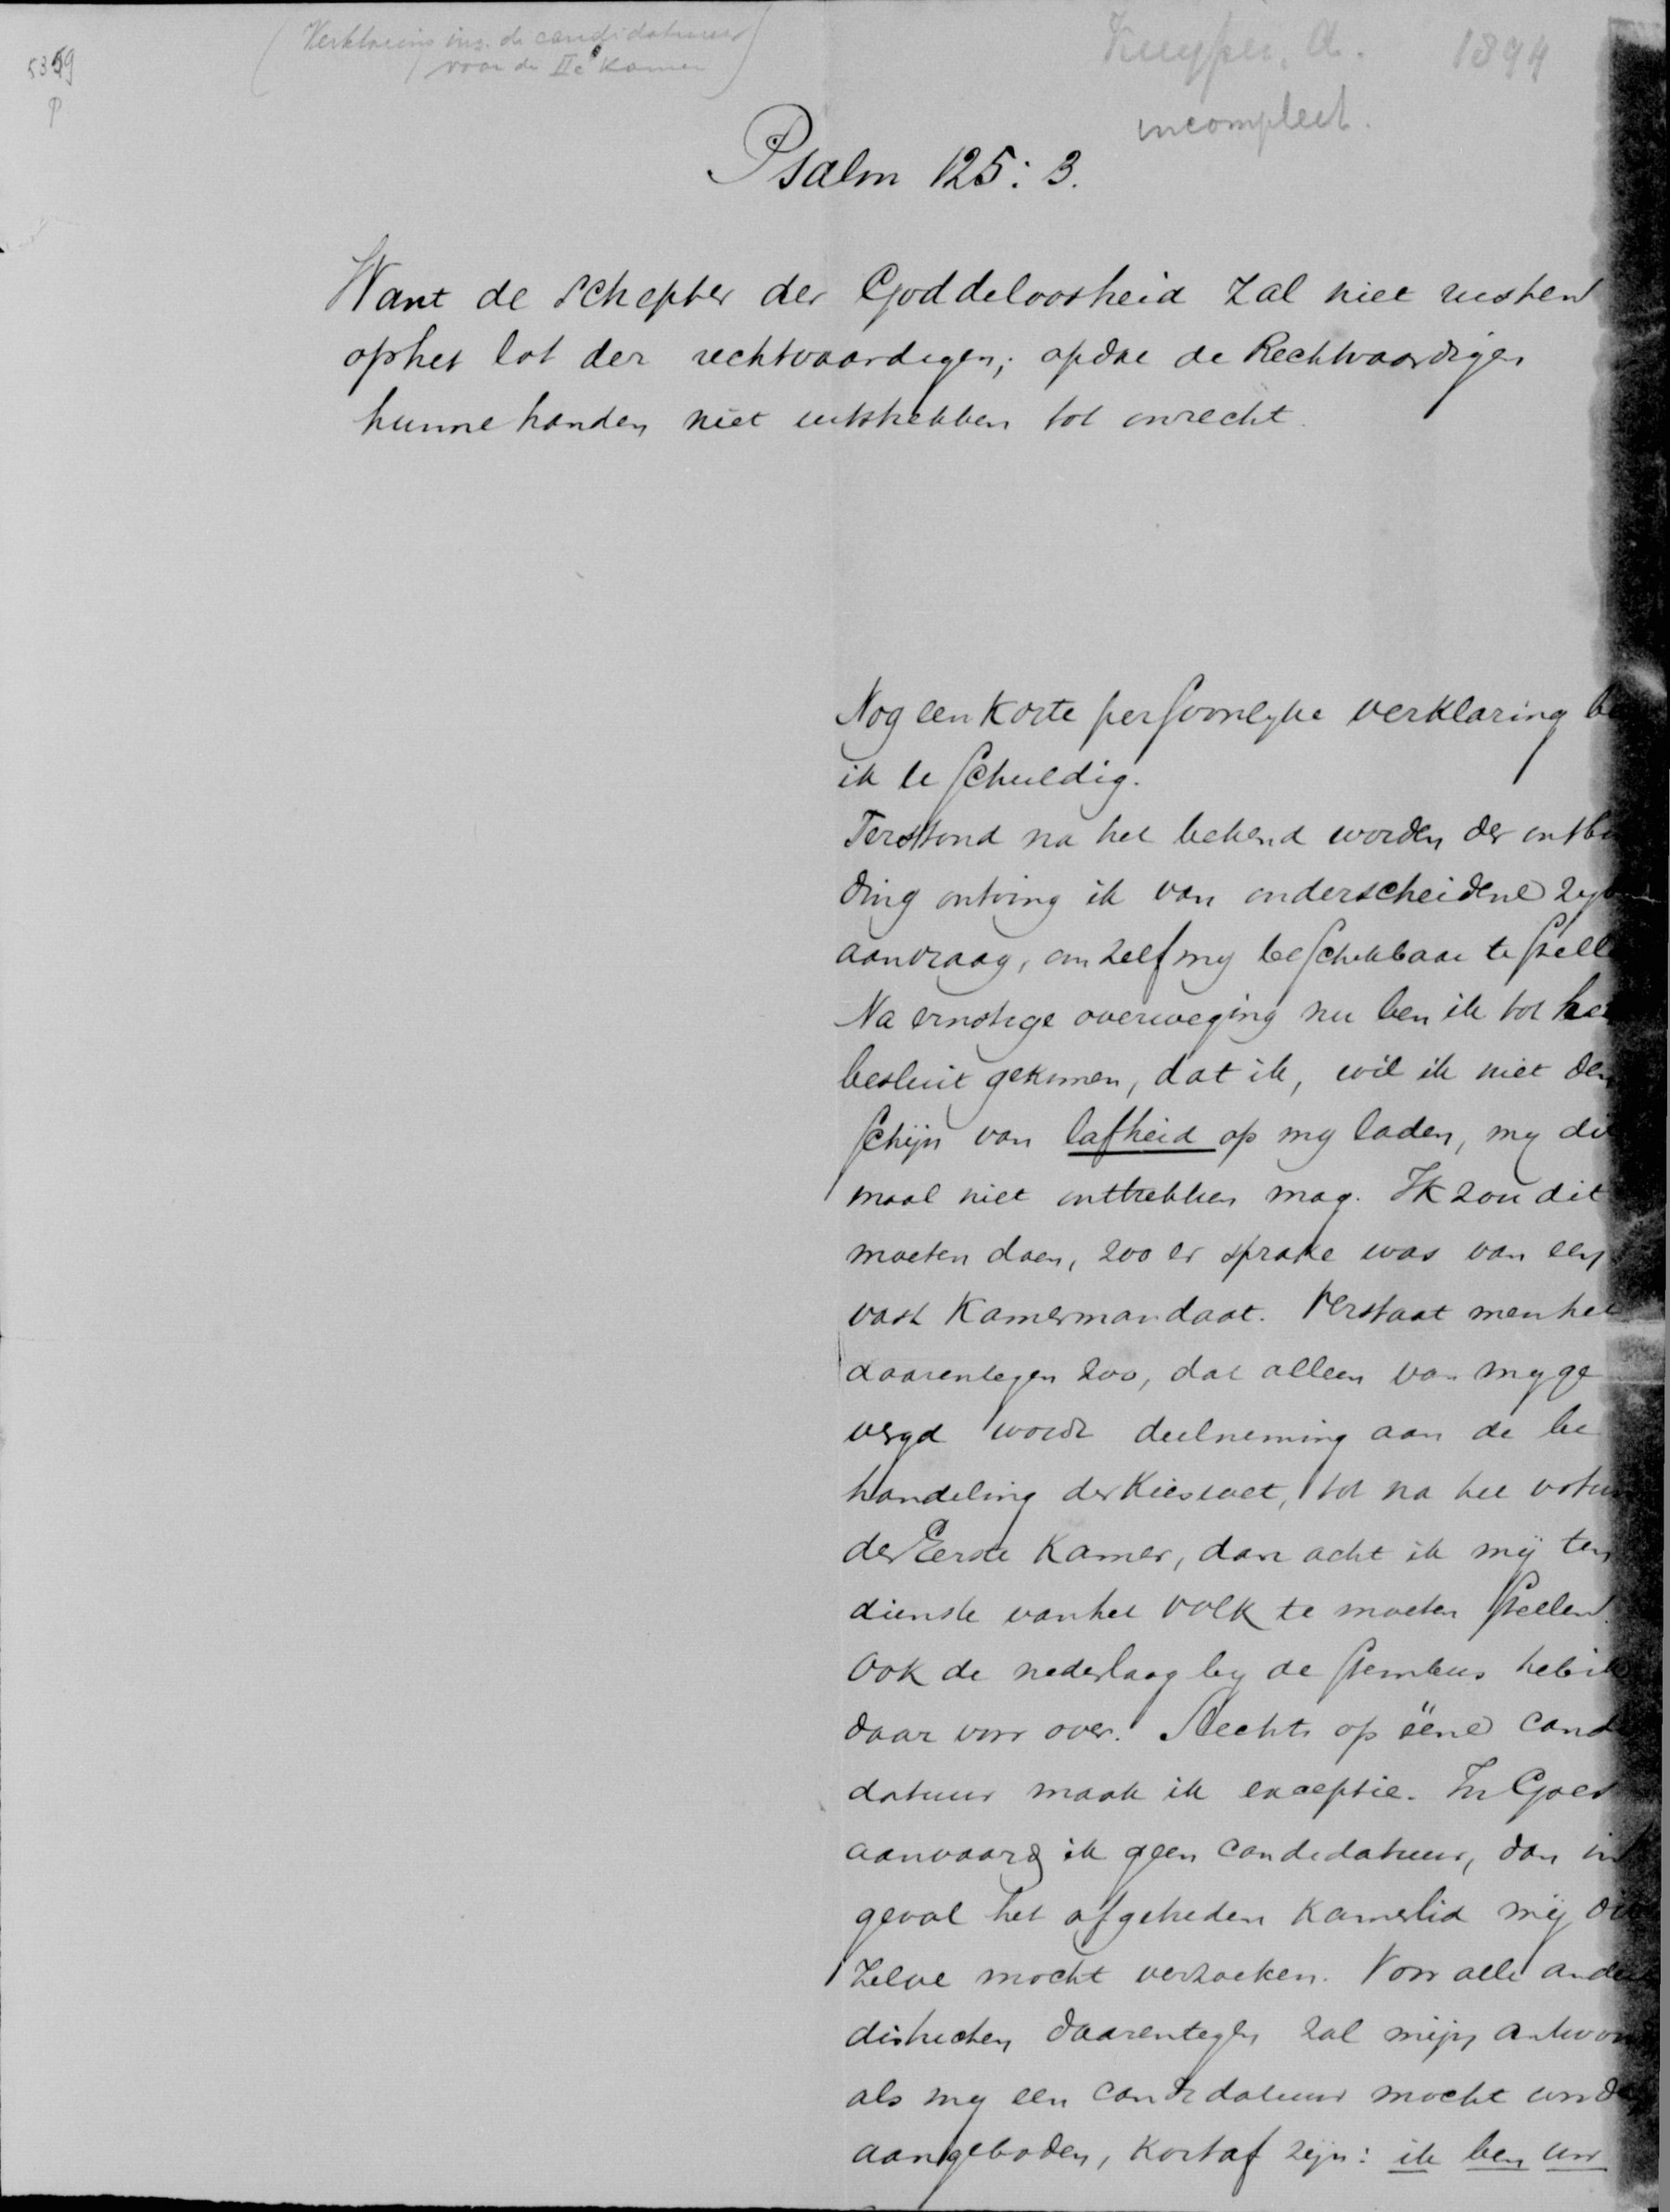 (Verklaring inz. de candidatuur
voor de IIe Kamer)
Kuyper, A. 1894
5359
P
incompleet.
Psalm 125: 3.
Want de schepter der Goddeloosheid zal niet rusten
op het lot der rechtvaardigen; opdat de Rechtvaardigen
hunne handen niet uitstrekken tot onrecht.
Nog een korte persoonlyke verklaring be
ik u schuldig.
Terstond na het bekend worden der ontbin
ding ontving ik van onderscheidene zyden
aanvraag, om zelf my beschikbaar te stelle
Na ernstige overweging nu ben ik tot het
besluit gekomen, dat ik, wil ik niet den
schijn van lafheid op my laden, my dit
maal niet onttrekken mag. Ik zou dit
moeten doen, zoo er sprake was van een
vast Kamermandaat. Verstaat men het
daarentegen zoo, dat alleen van my ge
vergd wordt deelneming aan de be
handeling der Kieswet, tot na het votum
der Eerste Kamer, dan acht ik mij ten
dienste van het volk te moeten stellen.
Ook de nederlaag by de stembus heb ik
daar voor over. Slechts op ëéne candi
datuur maak ik exceptie. In Goes
aanvaard ik geen candidatuur, dan in
geval het afgetreden Kamerlid mij dit
zelve mocht verzoeken. Voor alle andere
districten daarentegen zal mijn antwoord
als my een candidatuur mocht worden
aangeboden, kortaf zijn: ik ben uw